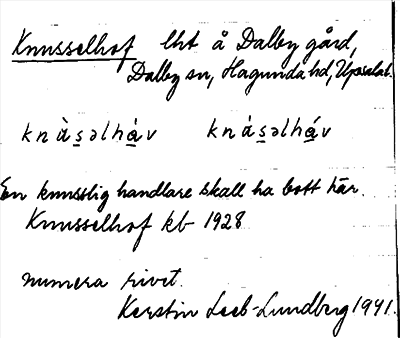 Knusselhof lht å Dalby gård,
Dalby sn, Hagunda hd, Upsala l.
knùsəlhàv knúsəlháv
En knusslig handlare skall ha bott här.
Knusselhof kb 1928
numera rivet.
Kerstin Leeb-Lundberg 1941.